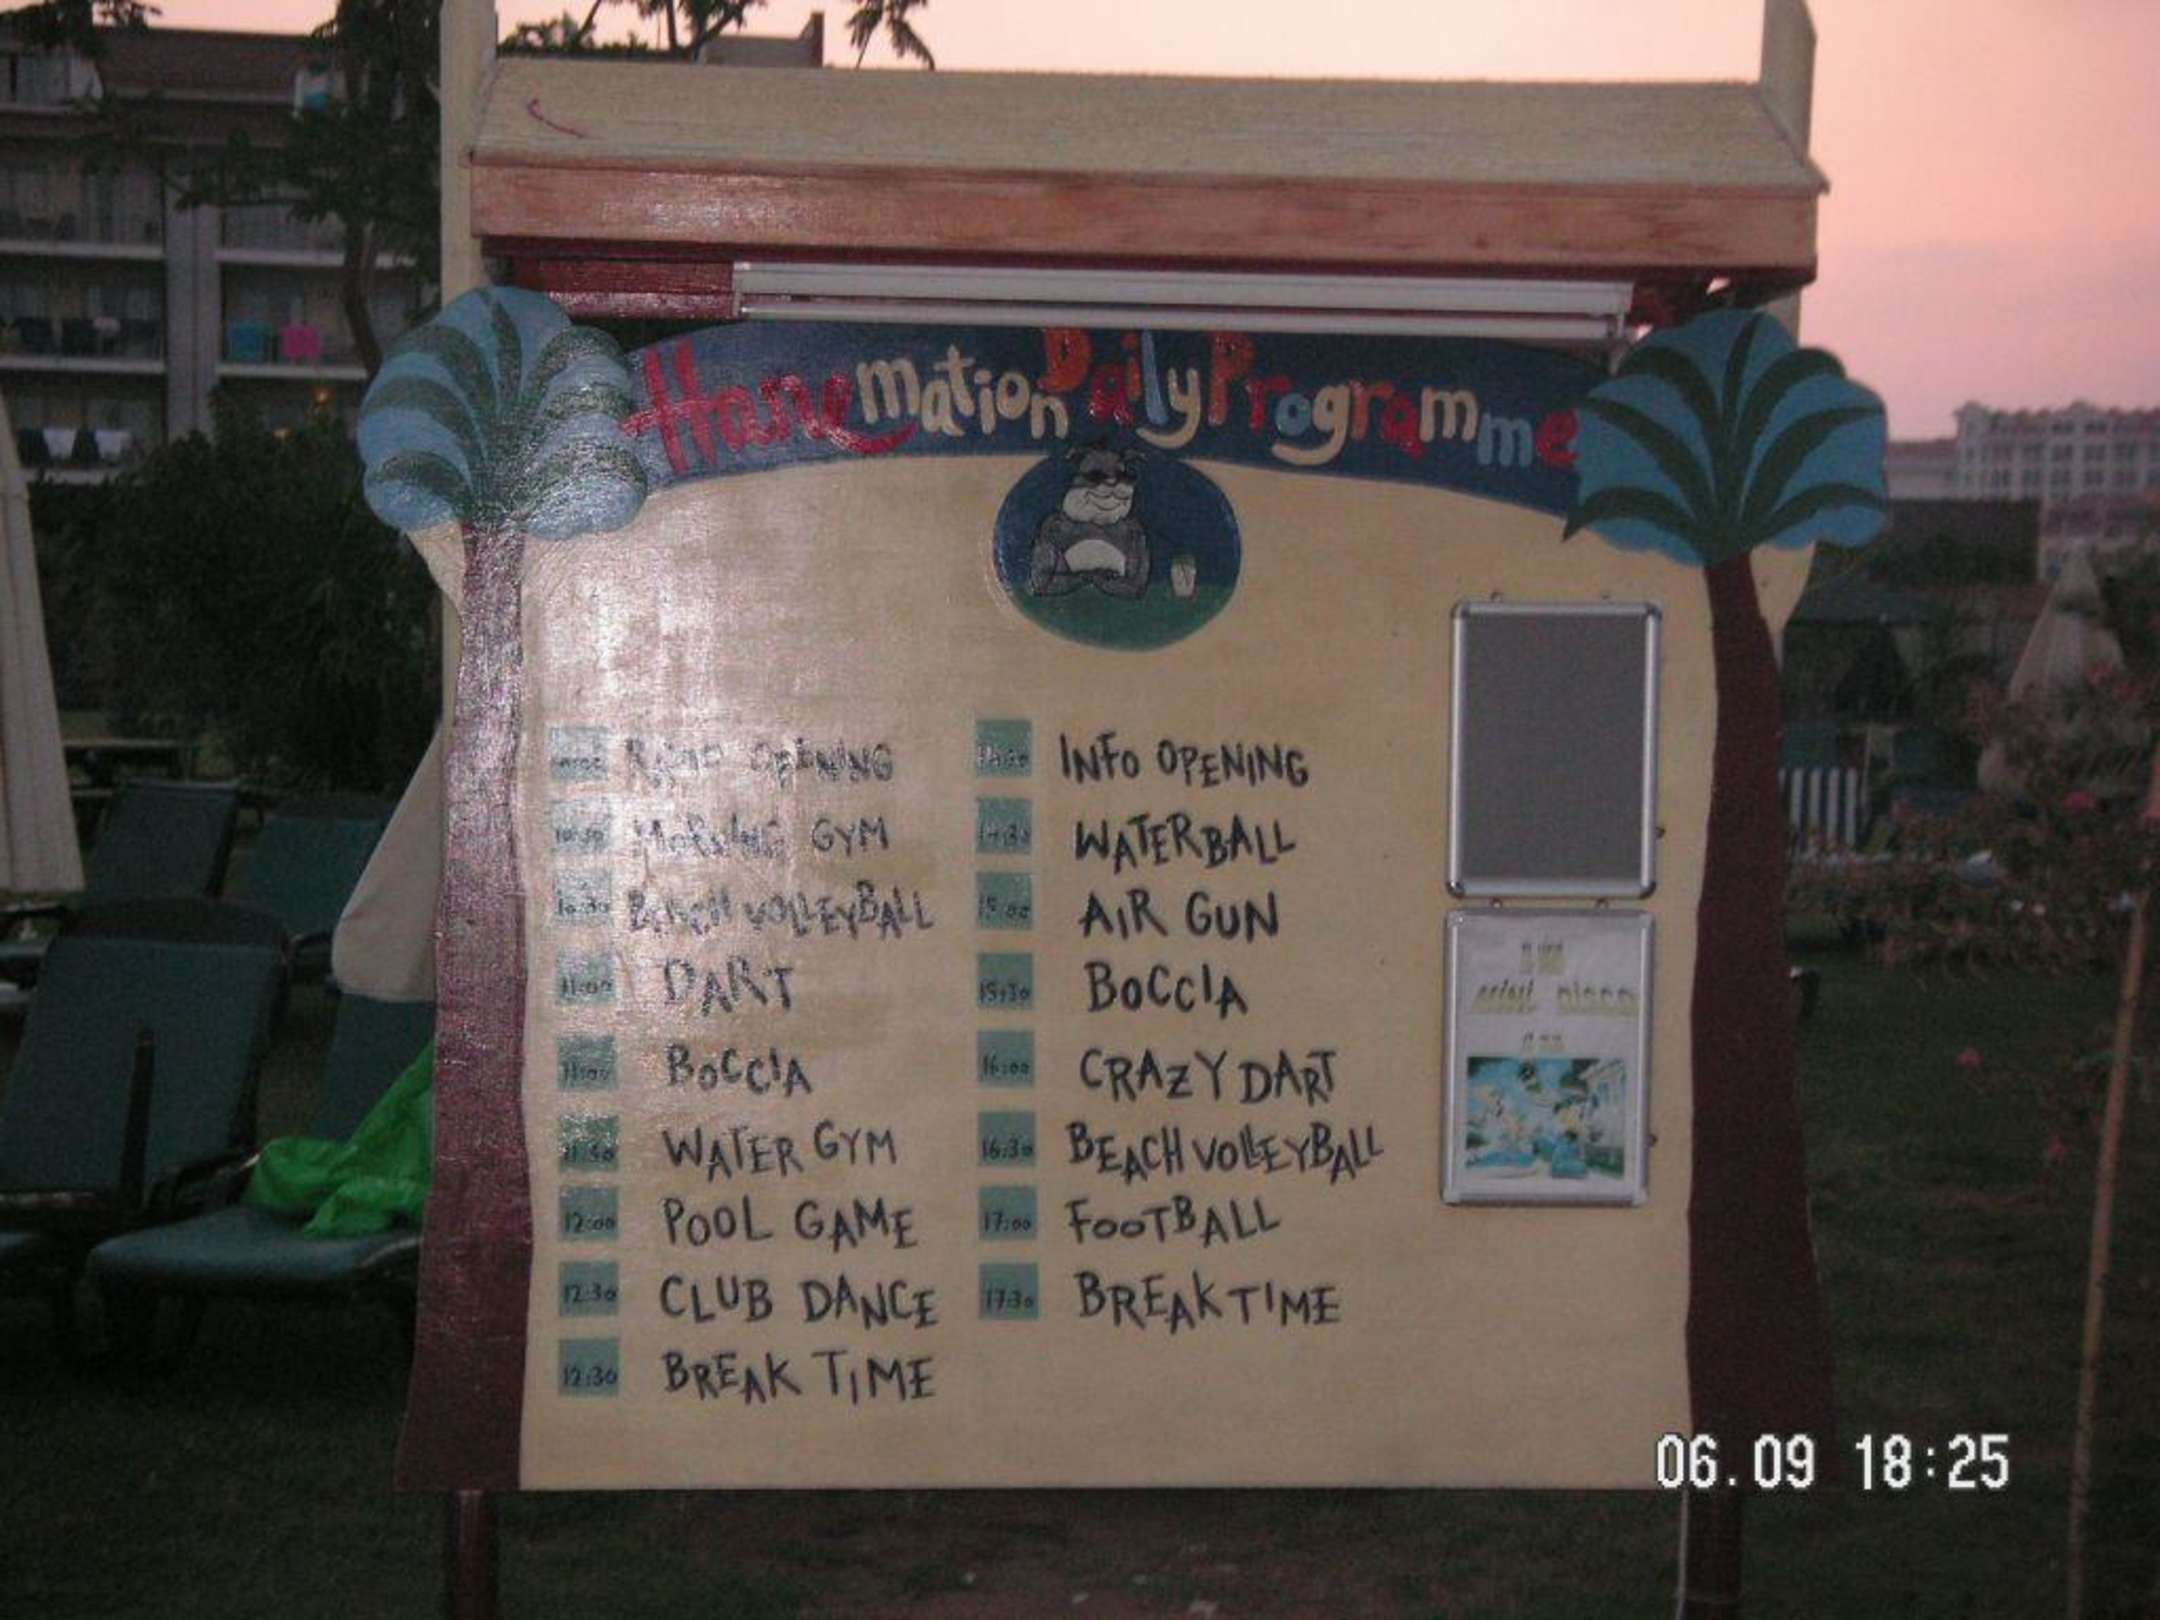 Hanemation Daily Programme
10:00 OPENING
10:30 MORNING GYM
10:30 BEACH VOLLEYBALL
11:00 DART
11:00 BOCCIA
11:30 WATER GYM
12:00 POOL GAME
12:30 CLUB DANCE
12:30 BREAK TIME
14:00 INFO OPENING
14:30 WATERBALL
15:00 AIR GUN
15:30 BOCCIA
16:00 CRAZY DART
16:30 BEACH VOLLEYBALL
17:00 FOOTBALL
17:30 BREAK TIME
mini disco
06.09 18:25